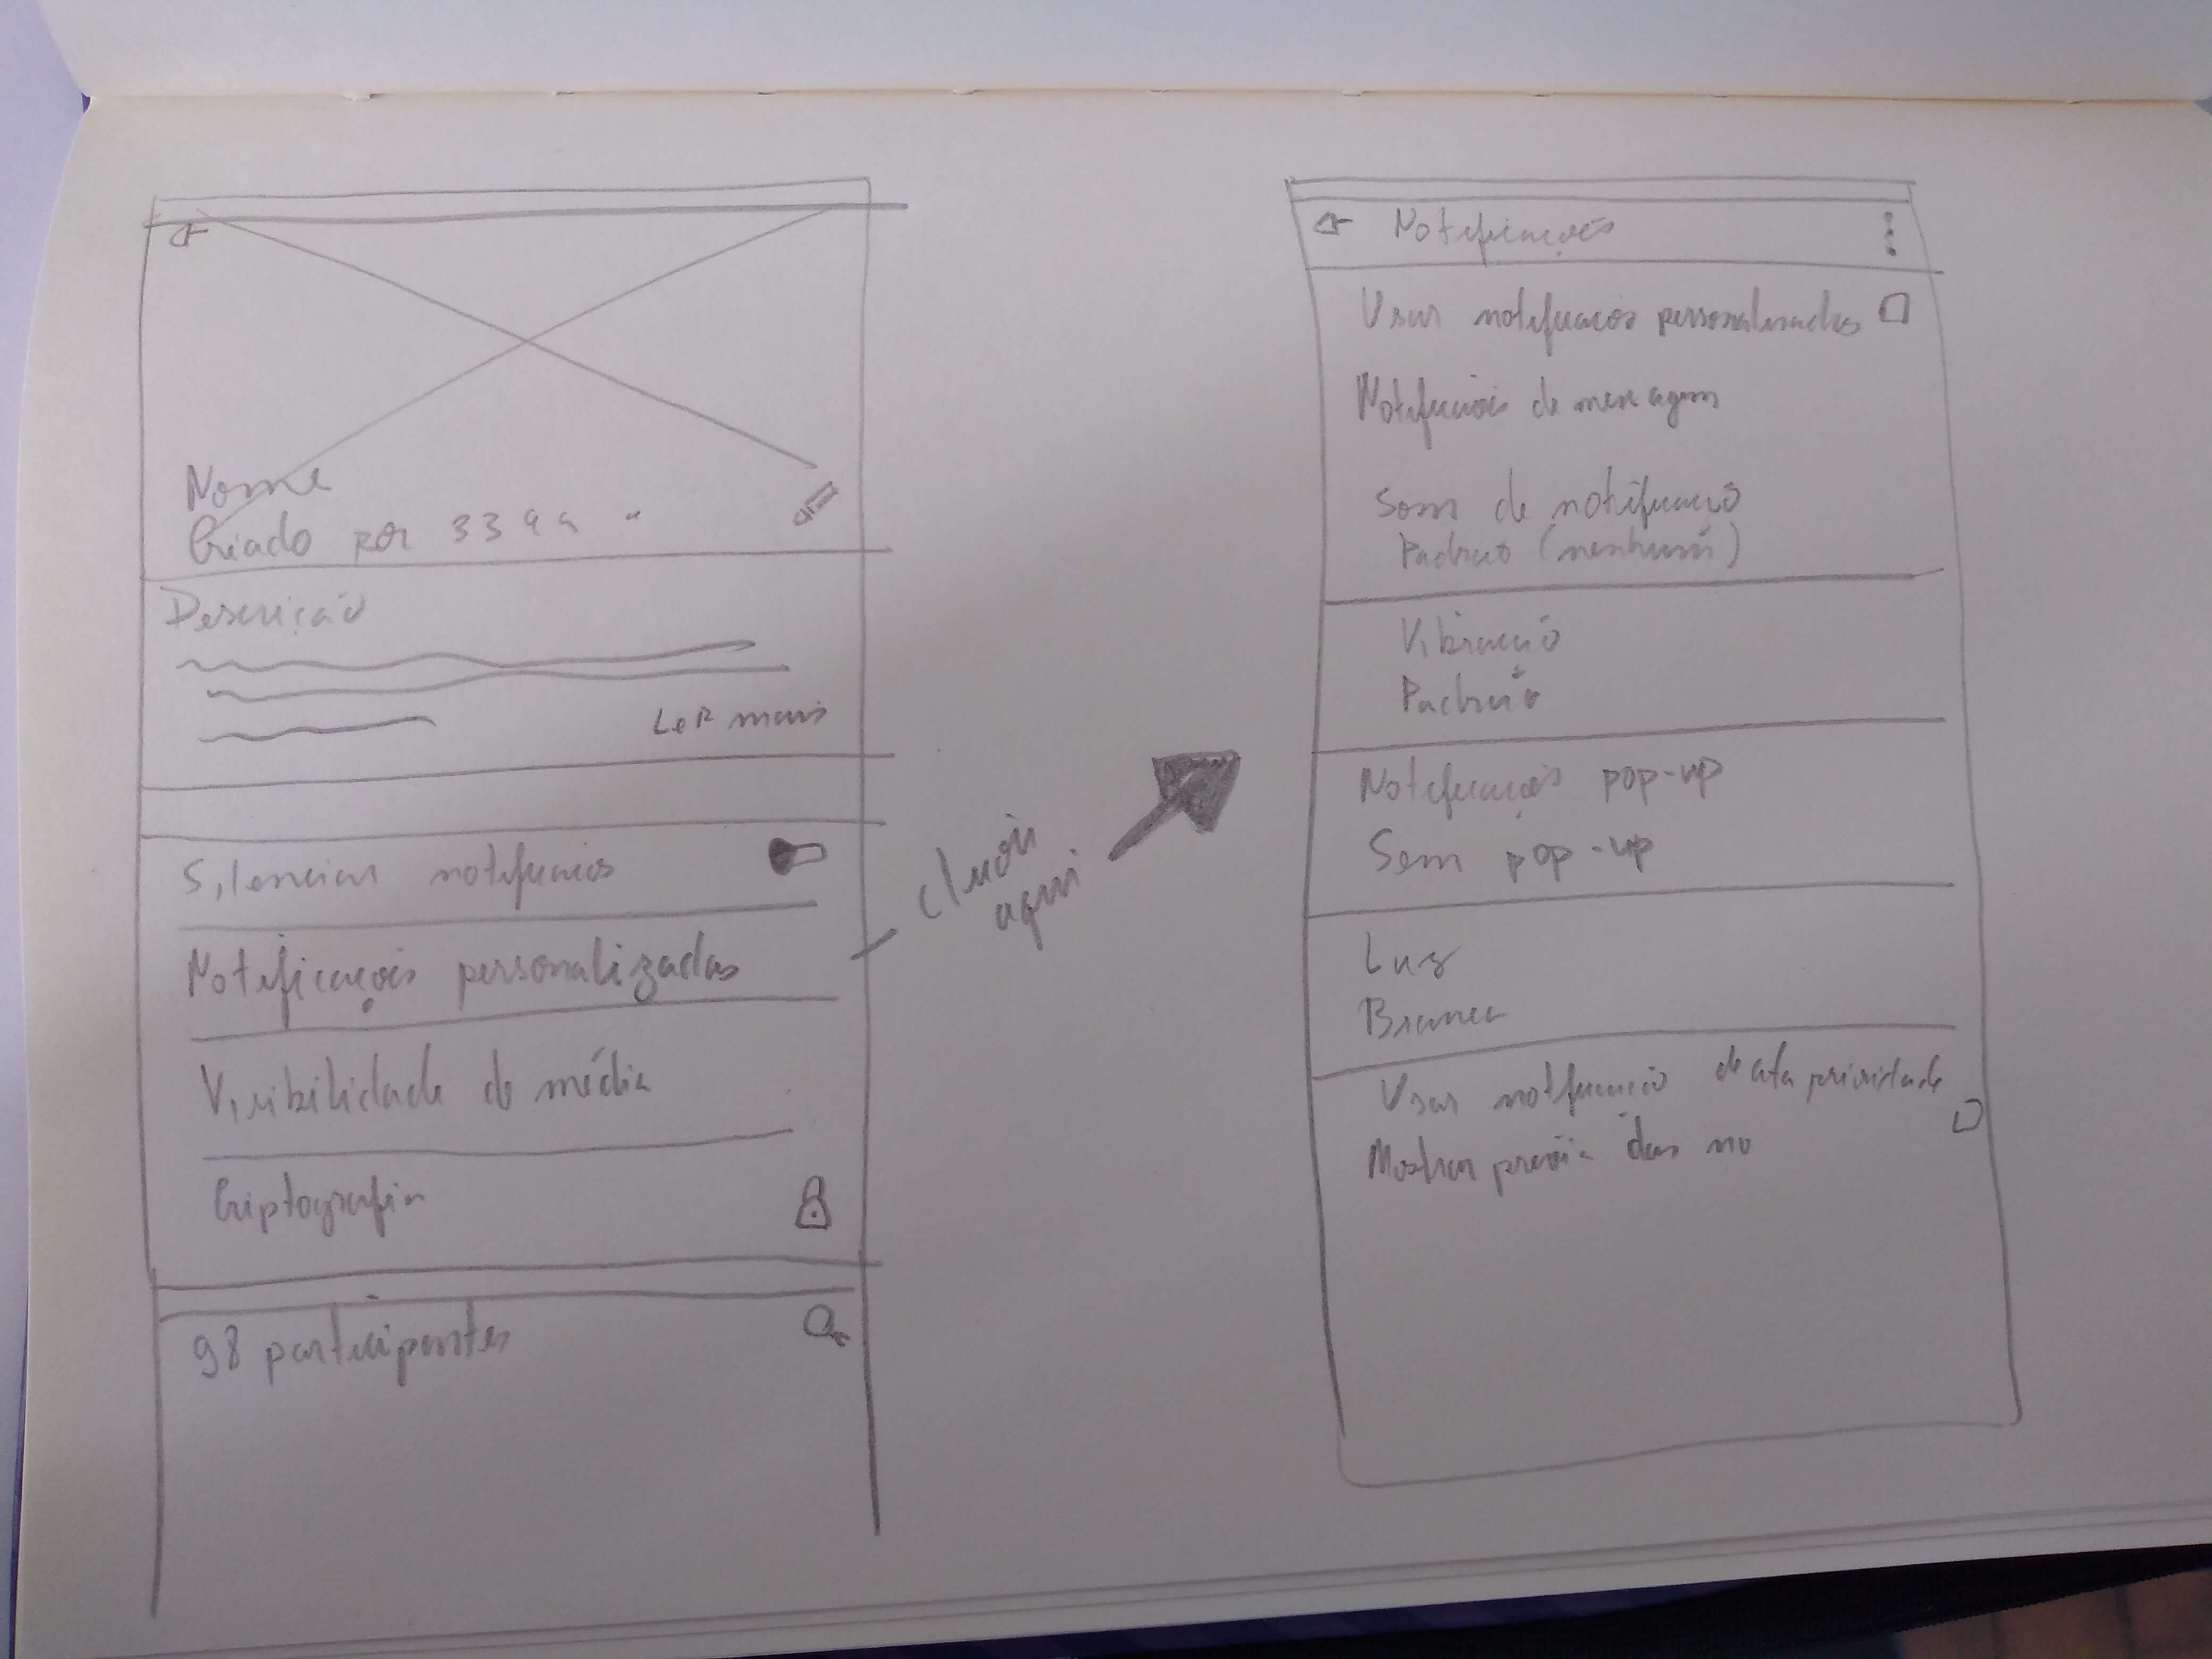 Nome
Criado por
Descrição
Ler mais
Silenciar notificações
Notificações personalizadas
Visibilidade de média
Criptografia
98 participantes
clicar
aqui
Notificações
Usar notificações personalizadas
Notificações de mensagem
Som de notificação
Padrão (nenhum)
Vibração
Padrão
Notificações pop-up
Sem pop-up
Luz
Branca
Usar notificação de alta prioridade
Mostrar prévia das no